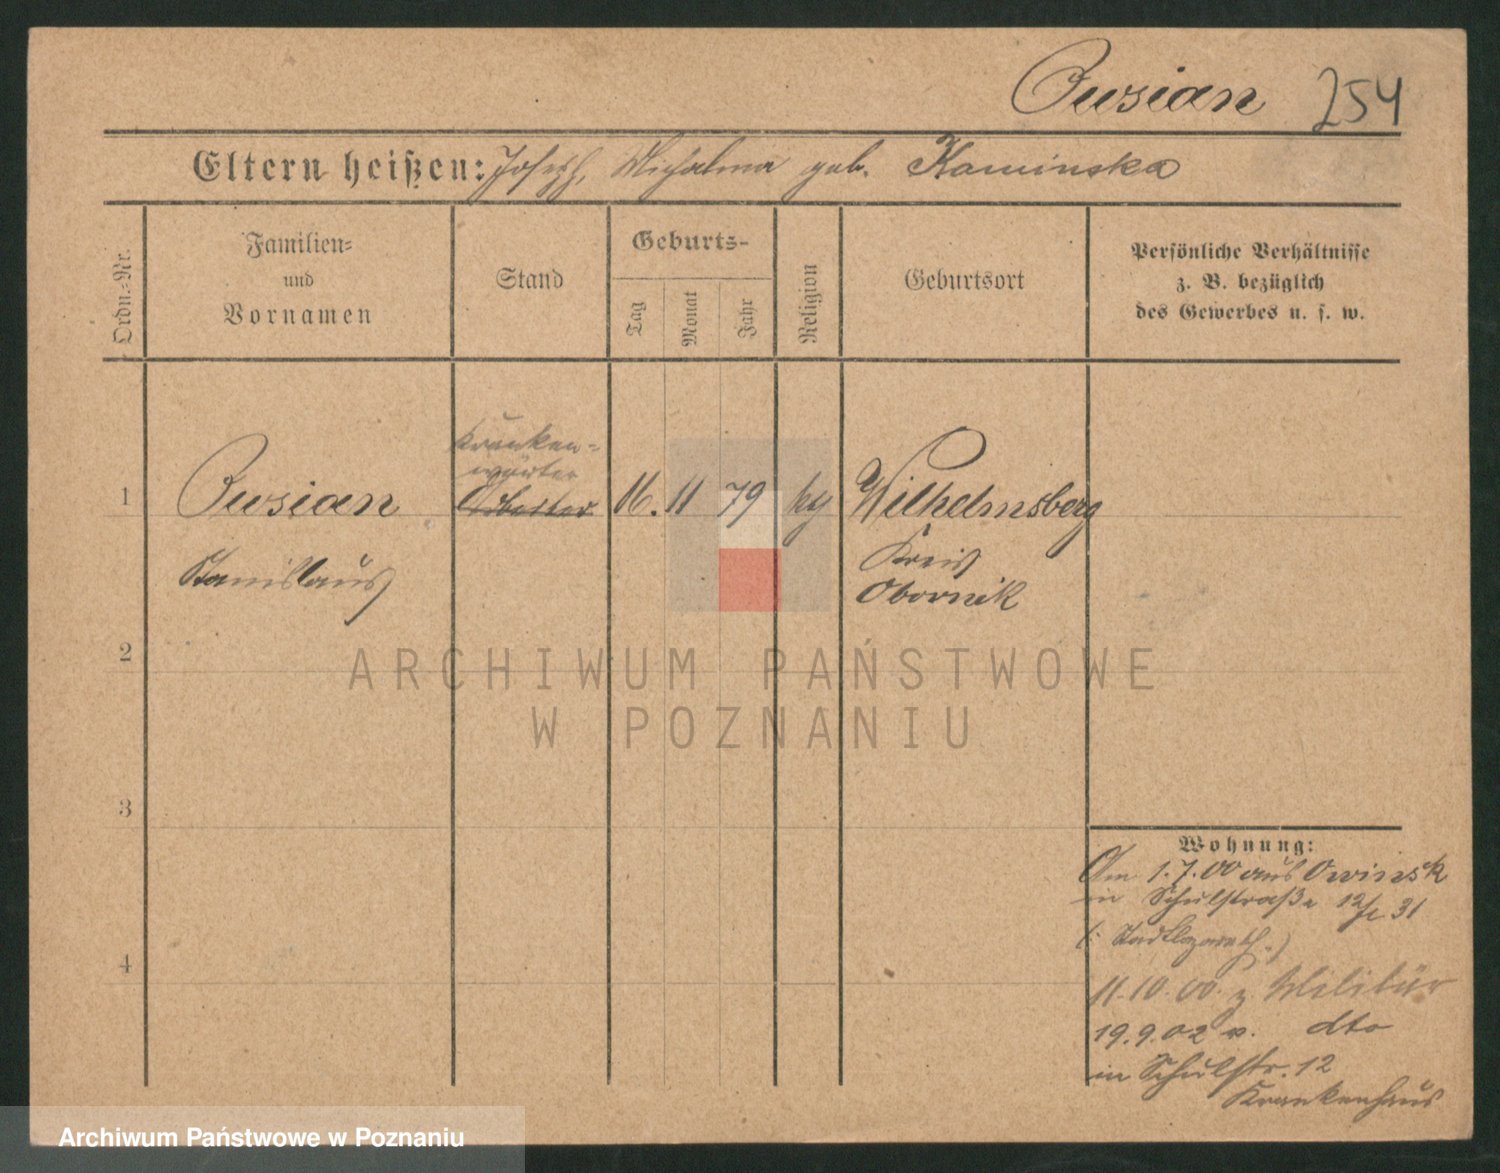 Pusian 254
Eltern heißen: Joseph, Michalina geb. Kaminska
Ordn.-Nr.
Familien-
und
Vornamen
Stand
Geburts-
Tag
Monat
Jahr
Religion
Geburtsort
Persönliche Verhältnisse
z. B. bezüglich
des Gewerbes u. s. w.
Kranken-
wärter
1 Pusian Arbeiter 16. 11 79 Wilhelmsberg
Stanislaus
Kreis
Obornik
2
3
4
Wohnung:
Am 1.7.00 aus Owinsk
in Schulstraße 12/I 31
(: Stadtlazareth :)
11.10.00. z. Militär
19.9.02 v. dto
in Schulstr. 12
Krankenhaus
ARCHIWUM PAŃSTWOWE
W POZNANIU
Archiwum Państwowe w Poznaniu